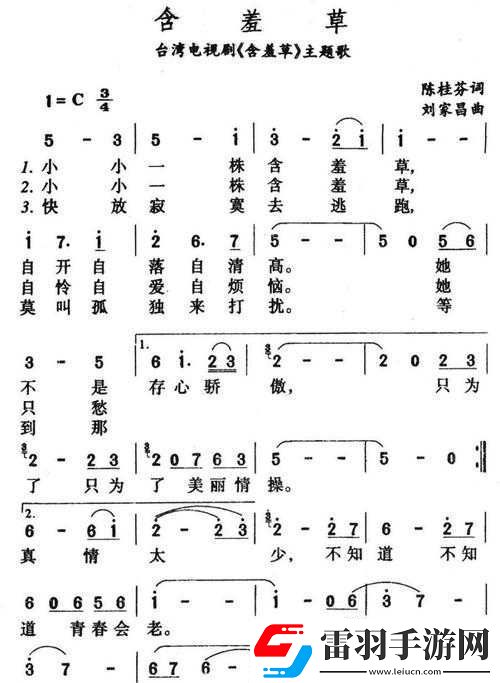 含羞草
台湾电视剧《含羞草》主题歌
陈桂芬词
刘家昌曲
1=C 3/4
5 - 3 | 5 - i | 3 - 2 i | i - - |
1. 小 小 一 株 含 羞 草,
2. 小 小 一 株 含 羞 草,
3. 快 放 寂 寞 去 逃 跑,
i 7. i | 2 6. 7 | 5 - - | 5 0 5 6 |
自 开 自 落 自 清 高。 她
自 怜 自 爱 自 烦 恼。 她
莫 叫 孤 独 来 打 扰。 等
3 - 5 | 1. 6 i. 2 3 | 2 - - | 2 0 2 3 |
不 是 存 心 骄 傲, 只 为
只 愁
到 那
2 - 2 3 | 2 0 7 6 3 | 5 - - | 5 - 0 :||
了 只 为 了 美 丽 情 操。
2. 6 - 6 i | 2 - 2 3 | 2 - 2 7 | 6 - 2 7 |
真 情 太 少, 不 知 道 不 知
6 0 6 5 6 | i - - | i - - |
道 青 春 会 老。
3 7 - | 6 7 6
雷羽手游网
www.leiucn.com